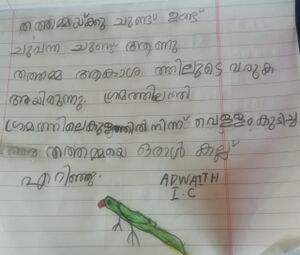 തത്തമ്മയ്ക്കു ചുണ്ട് ഉണ്ട്
ചുവന്ന ചുണ്ട് ആണു
തത്തമ്മ ആകാശ ത്തിലൂടെ വരുക
അയിരുന്നു. ഗ്രമത്തിലെത്തി
ഗ്രമത്തിലെകുളത്തിൽ നിന്ന് വെള്ളം കുടിച്ച
തത്തമ്മയെ ഒരാൾ കല്ല്
എറിഞ്ഞു.
ADWAITH
I.C